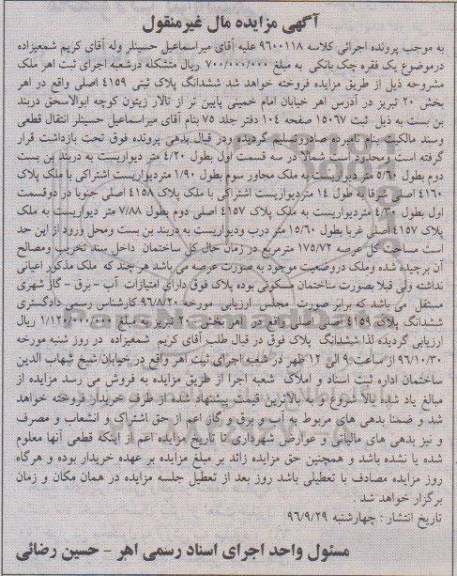 آگهی مزایده مال غیرمنقول
به موجب پرونده اجرائی کلاسه ۹۶۰۰۱۱۸ علیه آقای میراسماعیل حسینلر وله آقای کریم شمعیزاده
درموضوع یک فقره چک بانکی به مبلغ ۷۰۰/۰۰۰/۰۰۰ ریال متشکله درشعبه اجرای ثبت اهر ملک
مشروحه ذیل از طریق مزایده فروخته خواهد شد ششدانگ پلاک ثبتی ۴۱۵۹ اصلی واقع در اهر
بخش ۲۰ تبریز در آدرس اهر خیابان امام خمینی پایین تر از تالار زیتون کوچه ابوالسحق دربند
بن بست به ذیل ثبت ۱۵۰۶۷ صفحه ۱۰۴ دفتر جلد ۷۵ بنام آقای میراسماعیل حسینلر انتقال قطعی
وسند مالکیت بنام نامبرده صادروتسلیم گردیده ودر قبال بدهی پرونده فوق تحت بازداشت قرار
گرفته است ومحدود است شمالا در سه قسمت اول بطول ۴/۲۰ متر دیواریست به دربند بن بست
دوم بطول ۵/۶۰ متر دیواریست به ملک مجاور سوم بطول ۱/۹۰ متردیواریست اشتراکی با ملک پلاک
۴۱۶۰ اصلی شرقا به طول ۱۴ متردیواریست اشتراکی با ملک پلاک ۴۱۵۸ اصلی جنوبا در دوقسمت
اول بطول ۴/۳۰ متردیواریست به ملک پلاک ۴۱۵۷ اصلی دوم بطول ۷/۸۸ متر دیواریست به ملک
پلاک ۴۱۵۷ اصلی غربا بطول ۱۵/۶۰ متر درب ودیواریست به دربند بن بست ومحل ورود از این حد
است مساحت کل عرصه ۱۷۵/۷۲ مترمربع در زمان حال کل ساختمان داخل سند تخریب ومصالح
آن برچیده شده وملک دروضعیت موجود به صورت عرصه می باشد هر چند که ملک مذکور اعیانی
نداشته ولی قبلا بصورت ساختمان مسکونی بوده پلاک فوق دارای امتیازات آب - برق - گاز شهری
مستقل می باشد که برابر صورت مجلس ارزیابی مورخه ۹۶/۸/۲۰ کارشناس رسمی دادگستری
ششدانگ پلاک ۴۱۵۹ اصلی واقع در اهر بخش ۲۰ تبریز به مبلغ ۱/۱۲۰/۰۰۰/۰۰۰ ریال
ارزیابی گردیده لذا ششدانگ پلاک فوق در قبال طلب آقای کریم شمعیزاده در روز شنبه مورخه
۹۶/۱۰/۳۰ ازساعت ۹ الی ۱۲ ظهر در شعبه اجرای ثبت اهر واقع در خیابان شیخ شهاب الدین
ساختمان اداره ثبت اسناد و املاک شعبه اجرا از طریق مزایده به فروش می رسد مزایده از
مبالغ یاد شده بالا شروع و به بالاترین قیمت پیشنهاد شده از طرف خریدار فروخته خواهد
شد و ضمنا بدهی های مربوط به آب و برق و گاز اعم از حق اشتراک و انشعاب و مصرف
و نیز بدهی های مالیاتی و عوارض شهرداری تا تاریخ مزایده اعم از اینکه قطعی آنها معلوم
شده یا نشده باشد و همچنین حق مزایده زائد بر مبلغ مزایده بر عهده خریدار بوده و هرگاه
روز مزایده مصادف با تعطیلی باشد روز بعد از تعطیل جلسه مزایده در همان مکان و زمان
برگزار خواهد شد .
تاریخ انتشار : چهارشنبه ۹۶/۹/۲۹
مسئول واحد اجرای اسناد رسمی اهر - حسین رضائی